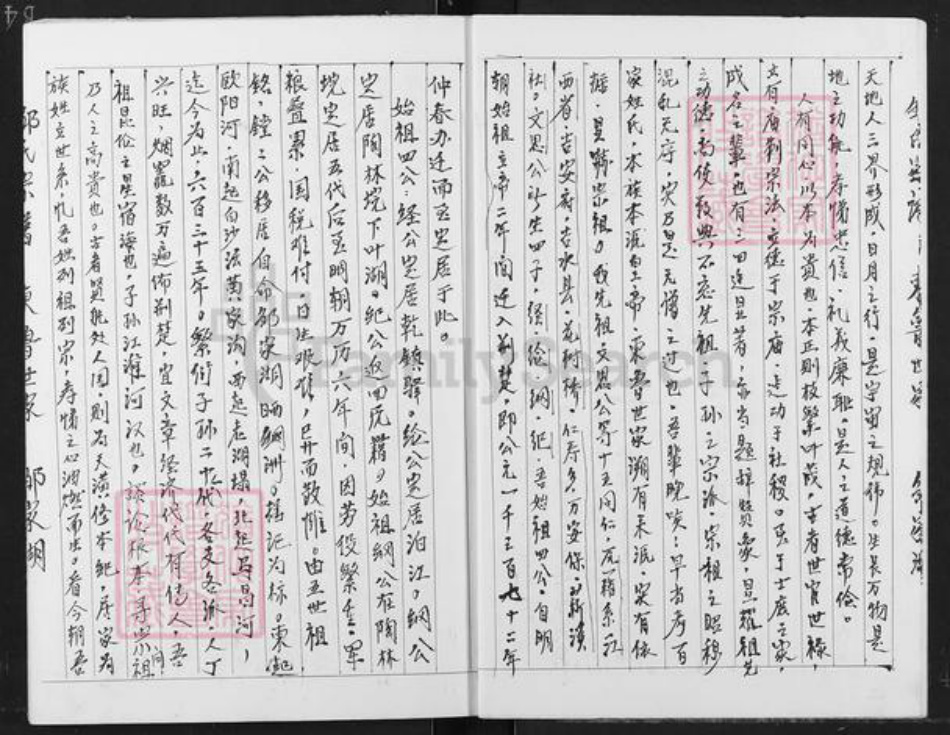 天地人三界形成，日月之行，是宇宙之规律。生长万物是
地之功能，孝悌忠信，礼义廉耻，是人之道德常伦。
人有同心，以本为贵也。本正则枝繁叶茂，古者世宦世禄，
立有庙制宗法，立德于宗庙，走功于社稷。至于士庶之家，
成名之辈，也有三四迁且著，亦当题赞，显耀祖先
之功德，高使数典不忘先祖，子孙之宗派，宗祖之昭穆
混乱无序，实乃是无谱之过也。吾辈晚矣！早当考百
家姓氏，本族本源皇帝，东鲁世家溯有来源，实有依
据，是赣宗祖。我先祖文思公等十五同仁，原籍系江
西省，吉安府，吉水县，花树桥，仁寿乡，万安保，
社。文思公所生四子，经、纶、纲、纪，吾始祖四公，自明
朝始祖立帝二年间迁入荆楚，即公元一千三百七十二年
仲春办迁而至定居于此。
始祖四公：经公定居乾镇驿。纶公定居泊江。纲公
定居陶林垸下叶湖。纪公收回原籍。始祖纲公在陶林
垸定居五代后至明朝万历六年间，因劳役繁重，军
粮叠累，国税难付，日坐艰难，已弃而散惟。由五世祖
铭、镗二公移居自命邹家湖晒网洲。插记为标。东起
欧阳河，南起白沙法黄家沟，西起老湖塌，北起马昌河，
迄今为止，六百三十五年。繁衍子孙二十代，各支各派，人丁
兴旺，烟灶数万遍佈荆楚，宜文章经济代代有传人，吾
祖昆伦之星宿海也，子孙江淮河汉也。谈论根本，寻宗问祖
乃人之高贵也。古者贤能处人国，则为天潢修本纪，居家为
族姓立世系，凡吾姓列祖列宗，孝悌之心油然而生。看今朝吾
FamilySearch